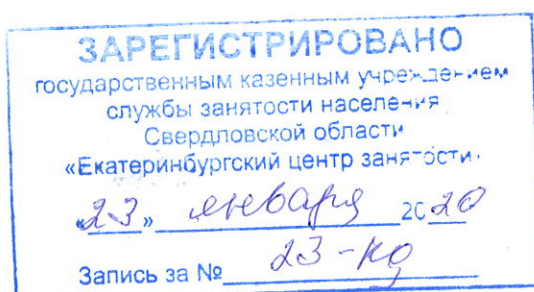 ЗАРЕГИСТРИРОВАНО
государственным казенным учреждением
службы занятости населения
Свердловской области
«Екатеринбургский центр занятости»
«23» января 2020
Запись за № 23-кд